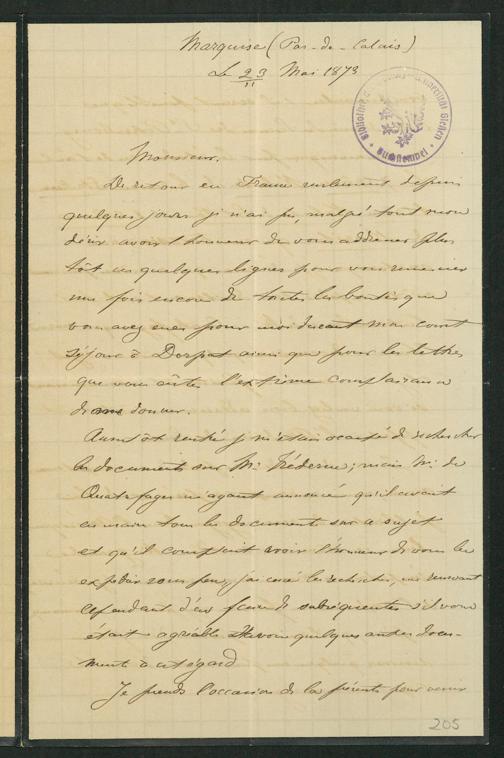 Marquise (Pas-de-Calais)
Le 23 Mai 1873
11
Monsieur.
De retour en France seulement depuis
quelques jours je n'ai pu, malgré tout mon
désir avoir l'honneur de vous addresser plus
tôt ces quelques lignes pour vous remercier
une fois encore de toutes les bontés que
vous avez eues pour moi durant mon court
séjour à Dorpat ainsi que pour les lettres
que vous eûtes l'extrème complaisance
de me donner.
Aussitôt rentré je m'étais occupé de rechercher
les documents sur Mr. ; mais Mr. de
Quatrefages m'ayant annoncé qu'il avait
en main tous les documents sur ce sujet
et qu'il comptait avoir l'honneur de vous les
expédier sous peu, j'ai cessé les recherches, me reservant
cependant d'en faire de subséquentes s'il vous
était agréable d'avoir quelques autres docu-
ments à cet égard
Je prends l'occasion de la présente pour venir
205